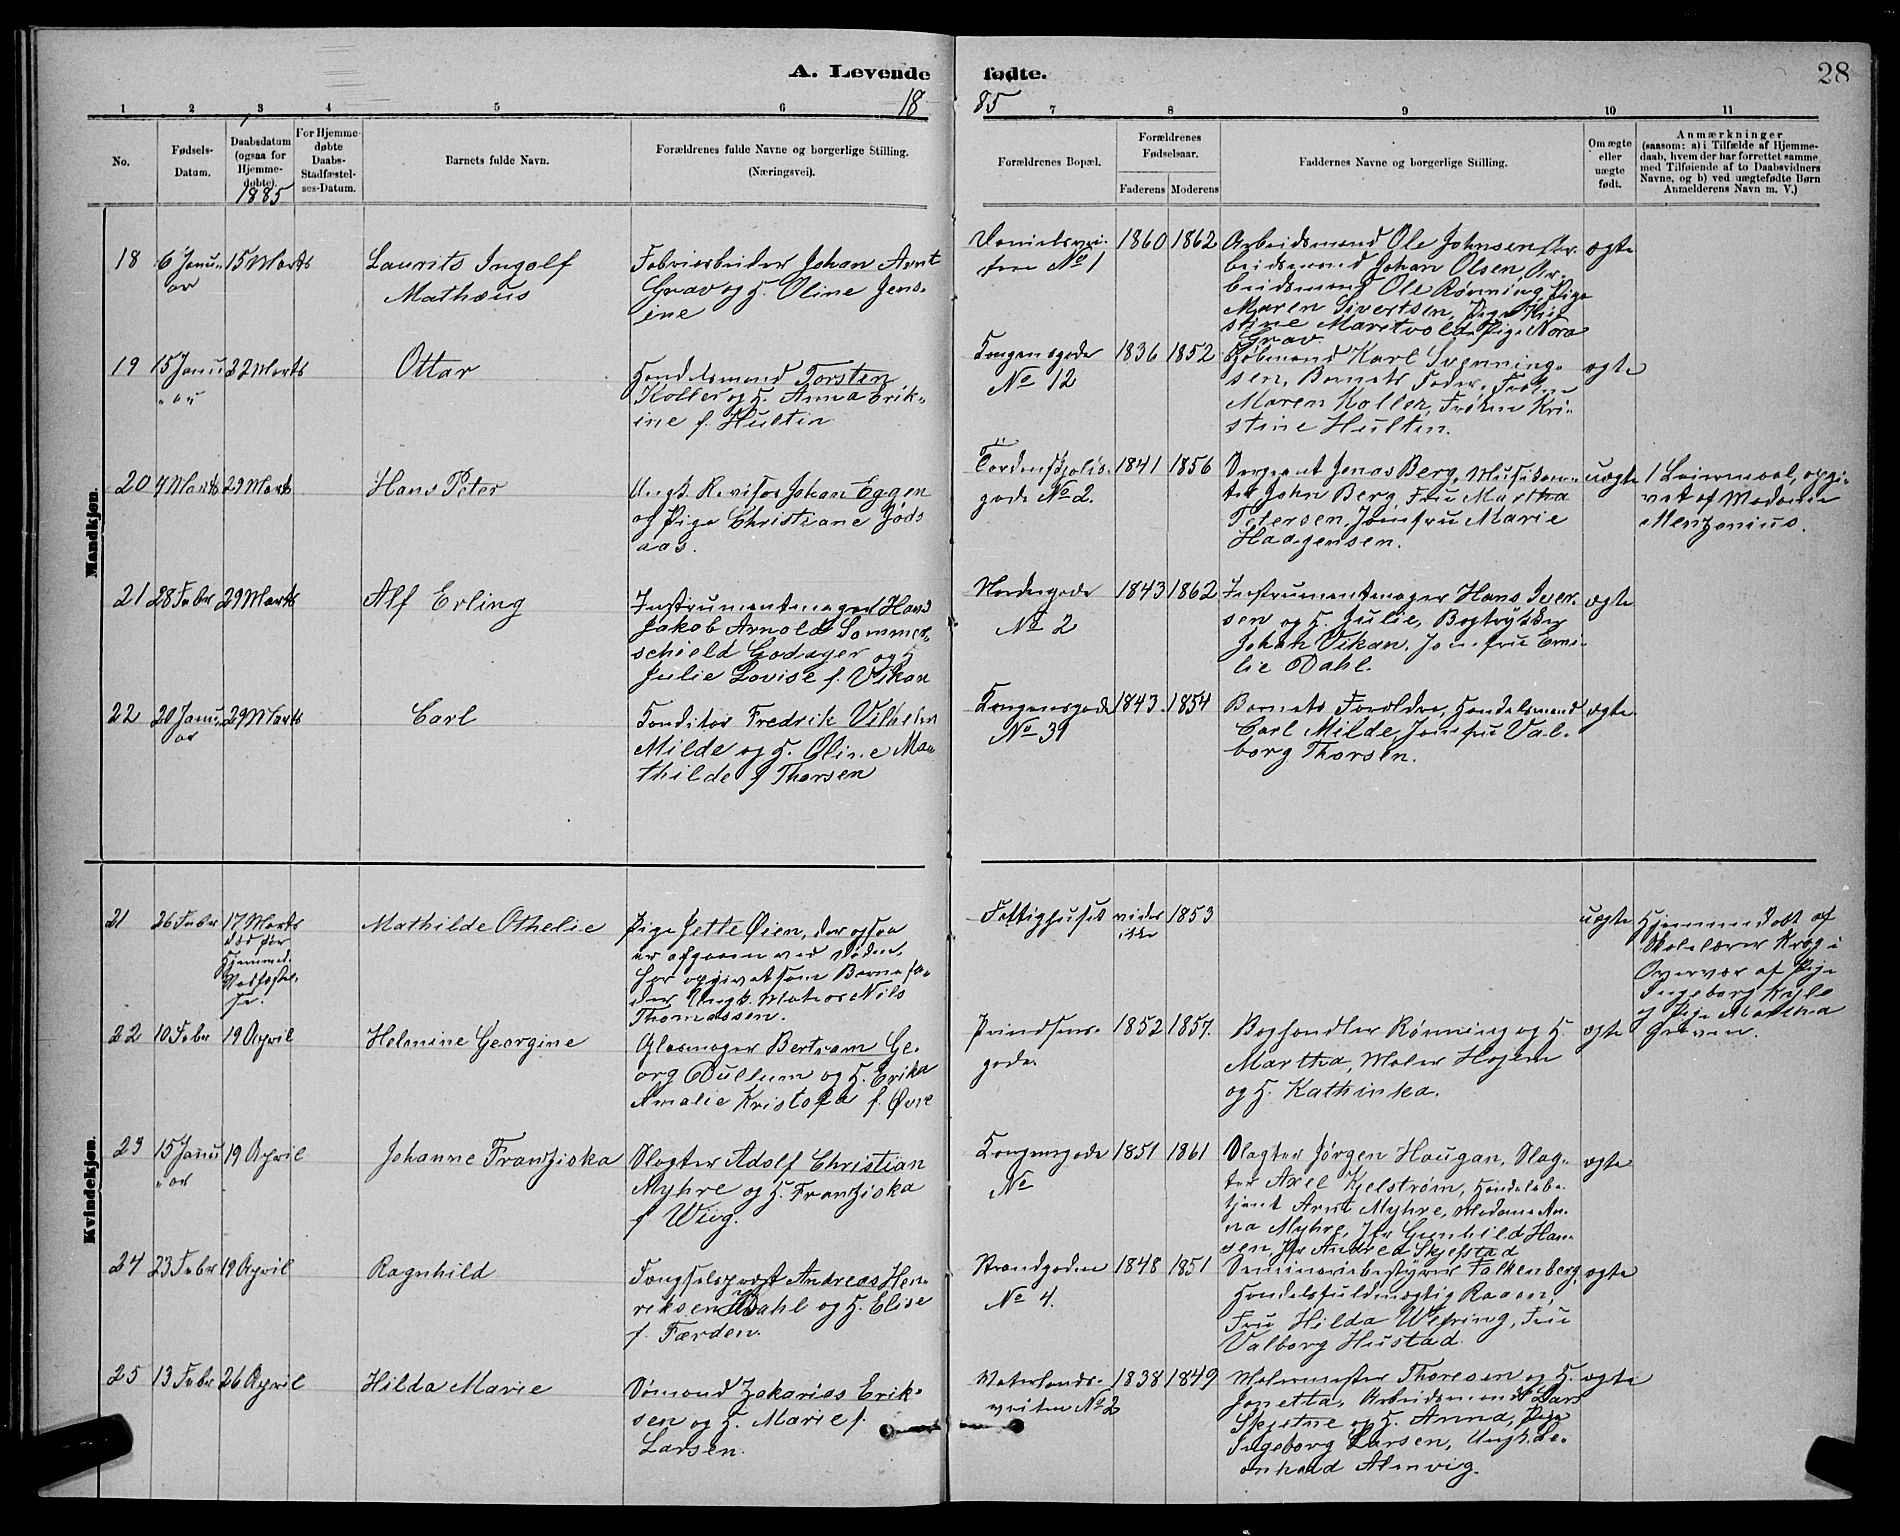 A. Levende fødte.
28
1885
1 2 3 4 5 6 7 8 9 10 11
No.
Fødsels-Datum.
Daabsdatum (ogsaa for Hjemmedøbte).
1885
For Hjemmedøbte Daabs-Stadfæstelses-Datum.
Barnets fulde Navn.
Forældrenes fulde Navne og borgerlige Stilling. (Næringsvei).
Forældrenes Bopæl.
Forældrenes Fødselsaar.
Faderens Moderens
Faddernes Navne og borgerlige Stilling.
Om ægte eller uægte født.
Anmærkninger
(saasom: a) i Tilfælde af Hjemme-
daab, hvem der har forrettet samme
med Tilføiende af to Daabsvidners
Navne, og b) ved uægtefødte Børn
Anmelderens Navn m. V.)
Mandkjøn.
18 6 Januar 15 Marts
Laurits Ingolf
Mathæus
Fabriarbeider Johan Arnt
Grav og H. Oline Jens-
ine
Danielsvei-
ten No 1
1860 1862
Arbeidsmand Ole Johnsen, Ar-
beidsmand Johan Olsen, Ar-
beidsmand Ole Rønning, Pige
Maren Sivertsen, Pige Kri-
stine Maritvold, Pige Nora
Grav.
ægte
19 15 Januar 22 Marts
Ottar
Handelsmand Torsten
Koller og H. Anna Erik-
ine f. Hultin
Kongensgade
No 12
1836 1852
Kjøbmand Karl Svenning-
sen, Barnets Fader, Frøken
Maren Koller, Frøken Kri-
stine Hultin.
ægte
20 4 Marts 29 Marts
Hans Peter
Ungk. Revisor Johan Eggen
og Pige Christiane Jøds
aas.
Tordenskjolds-
gade No 2.
1841 1856
Sergeant Jonas Berg, Musikan-
ter John Berg, Fru Martha
Petersen, Jomfru Marie
Haagensen.
uægte
1 Leiermaal, opgi-
vet af Madame
Menzonius.
21 28 Febr 29 Marts
Alf Erling
Instrumentmager Hans
Jakob Arnold Sommer-
schield Godager og H
Julie Lovise f. Vikan
Nordregade
No 2
1843 1862
Instrumentmager Hans Iver-
sen og H. Julie, Bogtrykker
Johan Vikan, Jomfru Emi-
lie Dahl.
ægte
22 20 Januar 29 Marts
Carl
Konditor Fredrik Vilhelm
Milde og H. Oline Ma-
thilde f Thorsen
Kongensgade
No 31
1843 1854
Barnets Forældre, Handelsmand
Carl Milde, Jomfru Val-
borg Thorsen.
ægte
Kvindekjøn.
21 26 Febr 17 Marts
død før
Hjemmed.
Stadfæstel-
se.
Mathilde Othelie
Pige Jette Øien, der ogsaa
er afgaaen ved Døden.
har opgivet som Barnefa-
der Ungk. Matros Nils
Thomassen.
Fattighuset
vides ikke 1853
uægte
Hjemmedøbt af
Skolelærer Krog i
Overvær af Pige
Ingeborg Kyls
og Pige Martha
Graven.
22 10 Febr 19 April
Helmine Georgine
Glasmager Bertram Ge-
org Dullum og H. Erika
Amalie Kristofa f. Øvre
Prindsens-
gade.
1852 1857
Boghandler Rønning og H
Martha, Maler Hojem
og H. Kathinka.
ægte
23 15 Januar 19 April
Johanne Franziska
Slagter Adolf Christian
Myhre og H. Franziska
f Wiig.
Kongensgade
No
1851 1861
Slagter Jørgen Haugan, Slag-
ter Axel Kjelstrøm, Handelsbe-
tjent Arnt Myhre, Madame An-
na Myhre, Jfr Gunhild Han-
sen, Jfr Andrea Skjefstad
ægte
24 23 Febr 19 April
Ragnhild
Fængselspræst Andreas Hen-
riksen Dahl og H. Elise
f. Færden.
Strandgaden
No 4.
1848 1851
Seminariebestyrer Falkenberg,
Handelsfuldmægtig Raaen,
Fru Hilda Wefring, Fru
Valborg Hustad.
ægte
25 13 Febr 26 April
Hilda Marie
Sømand Zakarias Erik-
sen og H. Marie f.
Larsen.
Waterlands-
veiten No 2
1838 1849
Malermester Thoresen og H.
Jonetta, Arbeidsmand Lars
Skjetne og H. Anna, Pige
Ingeborg Larsen, Ungk. Le-
onhard Almvig.
ægte